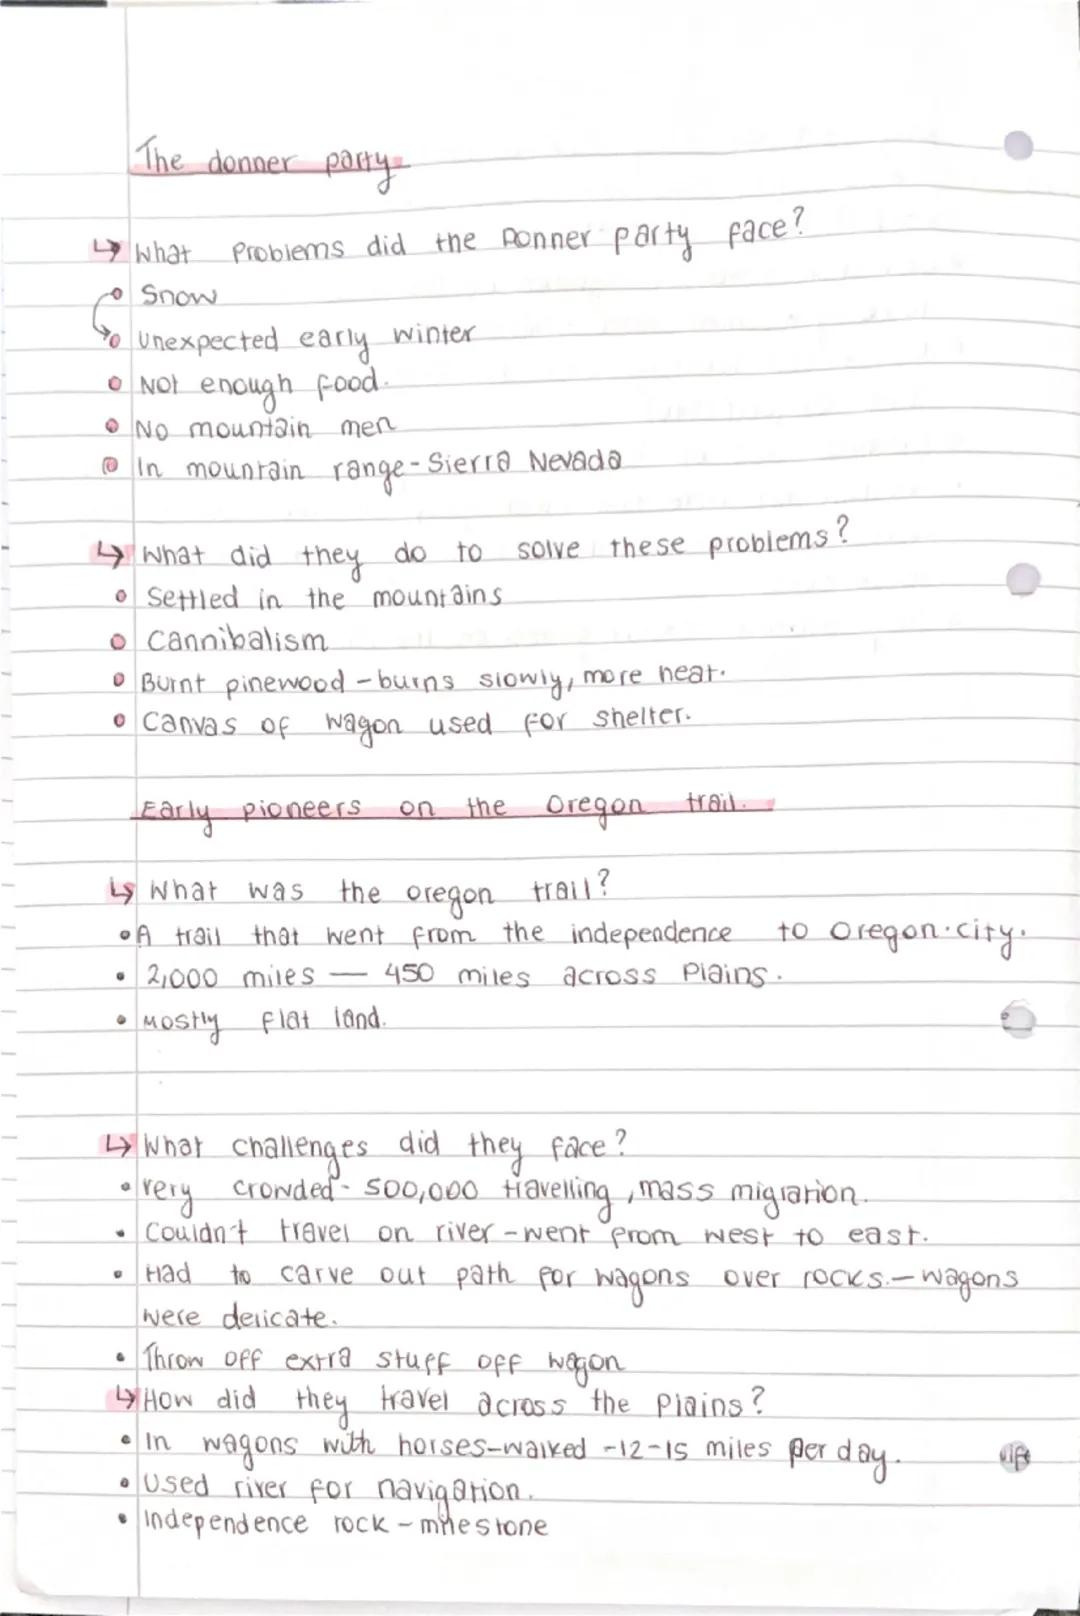 The donner party
↳ What problems did the Donner party face?
Snow
Unexpected early winter
Not enough food.
No mountain men
In mountain range - Sierra Nevada
↳ What did they do to solve these problems?
Settled in the mountains
Cannibalism
Burnt pinewood - burns slowly, more heat.
Canvas of wagon used for shelter.
Early pioneers on the Oregon trail.
↳ What was the oregon trail?
• A trail that went from the independence to Oregon city.
• 2,000 miles — 450 miles across Plains.
• Mostly flat land.
↳ What challenges did they face?
• Very crowded - 500,000 travelling, mass migration.
• Couldn't travel on river - went from west to east.
• Had to carve out path for wagons over rocks. - wagons
were delicate.
• Throw off extra stuff off wagon
↳ How did they travel across the Plains?
• In wagons with horses - walked - 12-15 miles per day.
• Used river for navigation.
• Independence rock - milestone